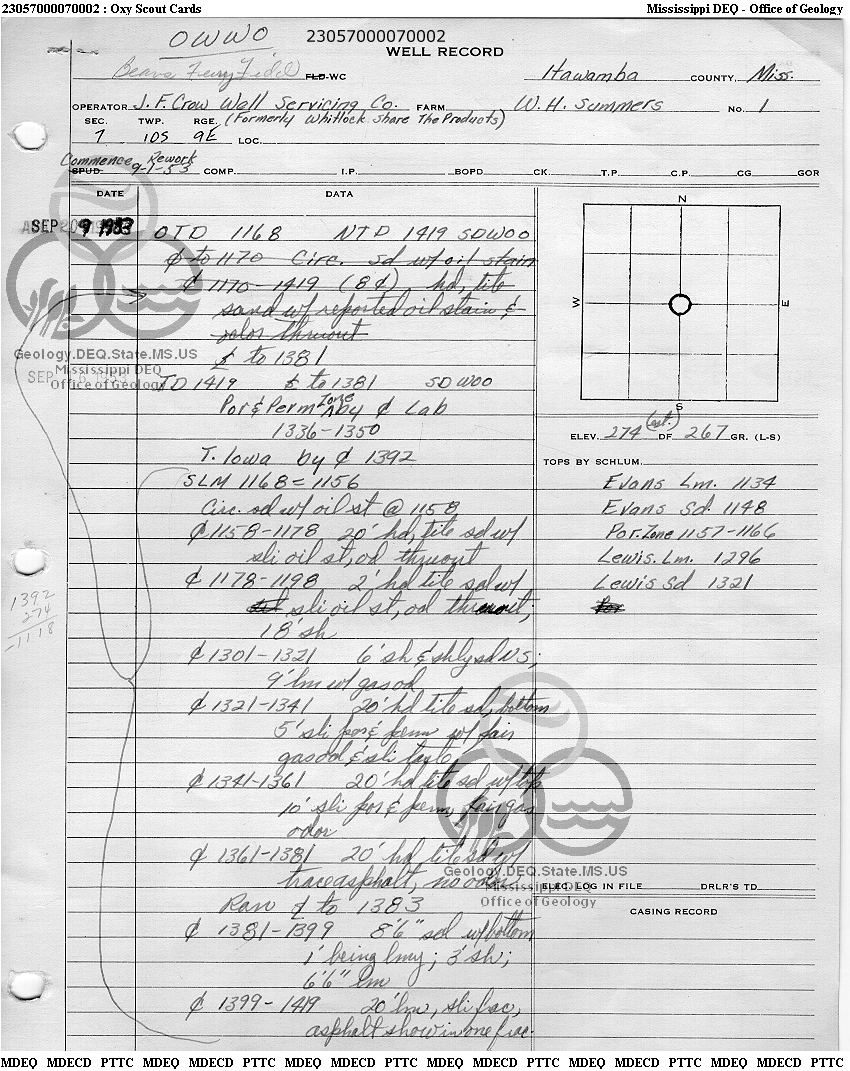 23057000070002 : Oxy Scout Cards Mississippi DEQ - Office of Geology
OWWO 23057000070002
WELL RECORD
Ferry Field FLD-WC Itawamba COUNTY, Miss.
OPERATOR J. F. Crow Well Servicing Co. FARM W. H. Summers No. 1
SEC. TWP. RGE. (Formerly Whitlock Share The Products)
7 10S 9E LOC.
Commence Rework
SPUD 9-1-53 COMP. I.P. BOPD CK. T.P. C.P. CG GOR
DATE DATA
SEP 9 1953 OTD 1168 NTD 1419 SDWOO
₵ to 1170 Circ. sd w/ oil stain
₵ 1170-1419 (8₵) hd, tite
sand w/ reported oil stain &
odor thruout
₵ to 1381
TD 1419 ₵ to 1381 SDWOO
Por & Perm Zone by ₵ & Lab
1336-1350
T. Iowa by ₵ 1392
SLM 1168 = 1156
Circ. sd w/ oil st @ 1158
₵ 1158-1178 20' hd, tite sd w/
sli oil st, od thruout
₵ 1178-1198 2' hd tite sd w/
sli oil st, od thruout;
18' sh
₵ 1301-1321 6' sh & shly sd NS;
9' lm w/ gas od
₵ 1321-1341 20' hd tite sd, bottom
5' sli por & perm w/ fair
gas od & sli taste
₵ 1341-1361 20' hd tite sd w/ top
10' sli por & perm, fair gas
odor
₵ 1361-1381 20' hd, tite sd w/
trace asphalt, no odor
Ran ₵ to 1383
₵ 1381-1399 8'6" sd w/ bottom
1' being lmy; 3' sh;
6'6" lm
₵ 1399-1419 20' lm, sli frac,
asphalt show in one frac.
1392
274
-1118
N
W E
S
ELEV. 274 (est.) DF 267 GR. (L-S)
TOPS BY SCHLUM.
Evans Lm. 1134
Evans Sd. 1148
Por. Zone 1157-1166
Lewis. Lm. 1296
Lewis Sd 1321
Por
ELEC. LOG IN FILE DRLR'S TD
CASING RECORD
Geology.DEQ.State.MS.US
Mississippi DEQ
Office of Geology
Geology.DEQ.State.MS.US
Mississippi DEQ
Office of Geology
MDEQ MDECD PTTC MDEQ MDECD PTTC MDEQ MDECD PTTC MDEQ MDECD PTTC MDEQ MDECD PTTC MDEQ MDECD PTTC